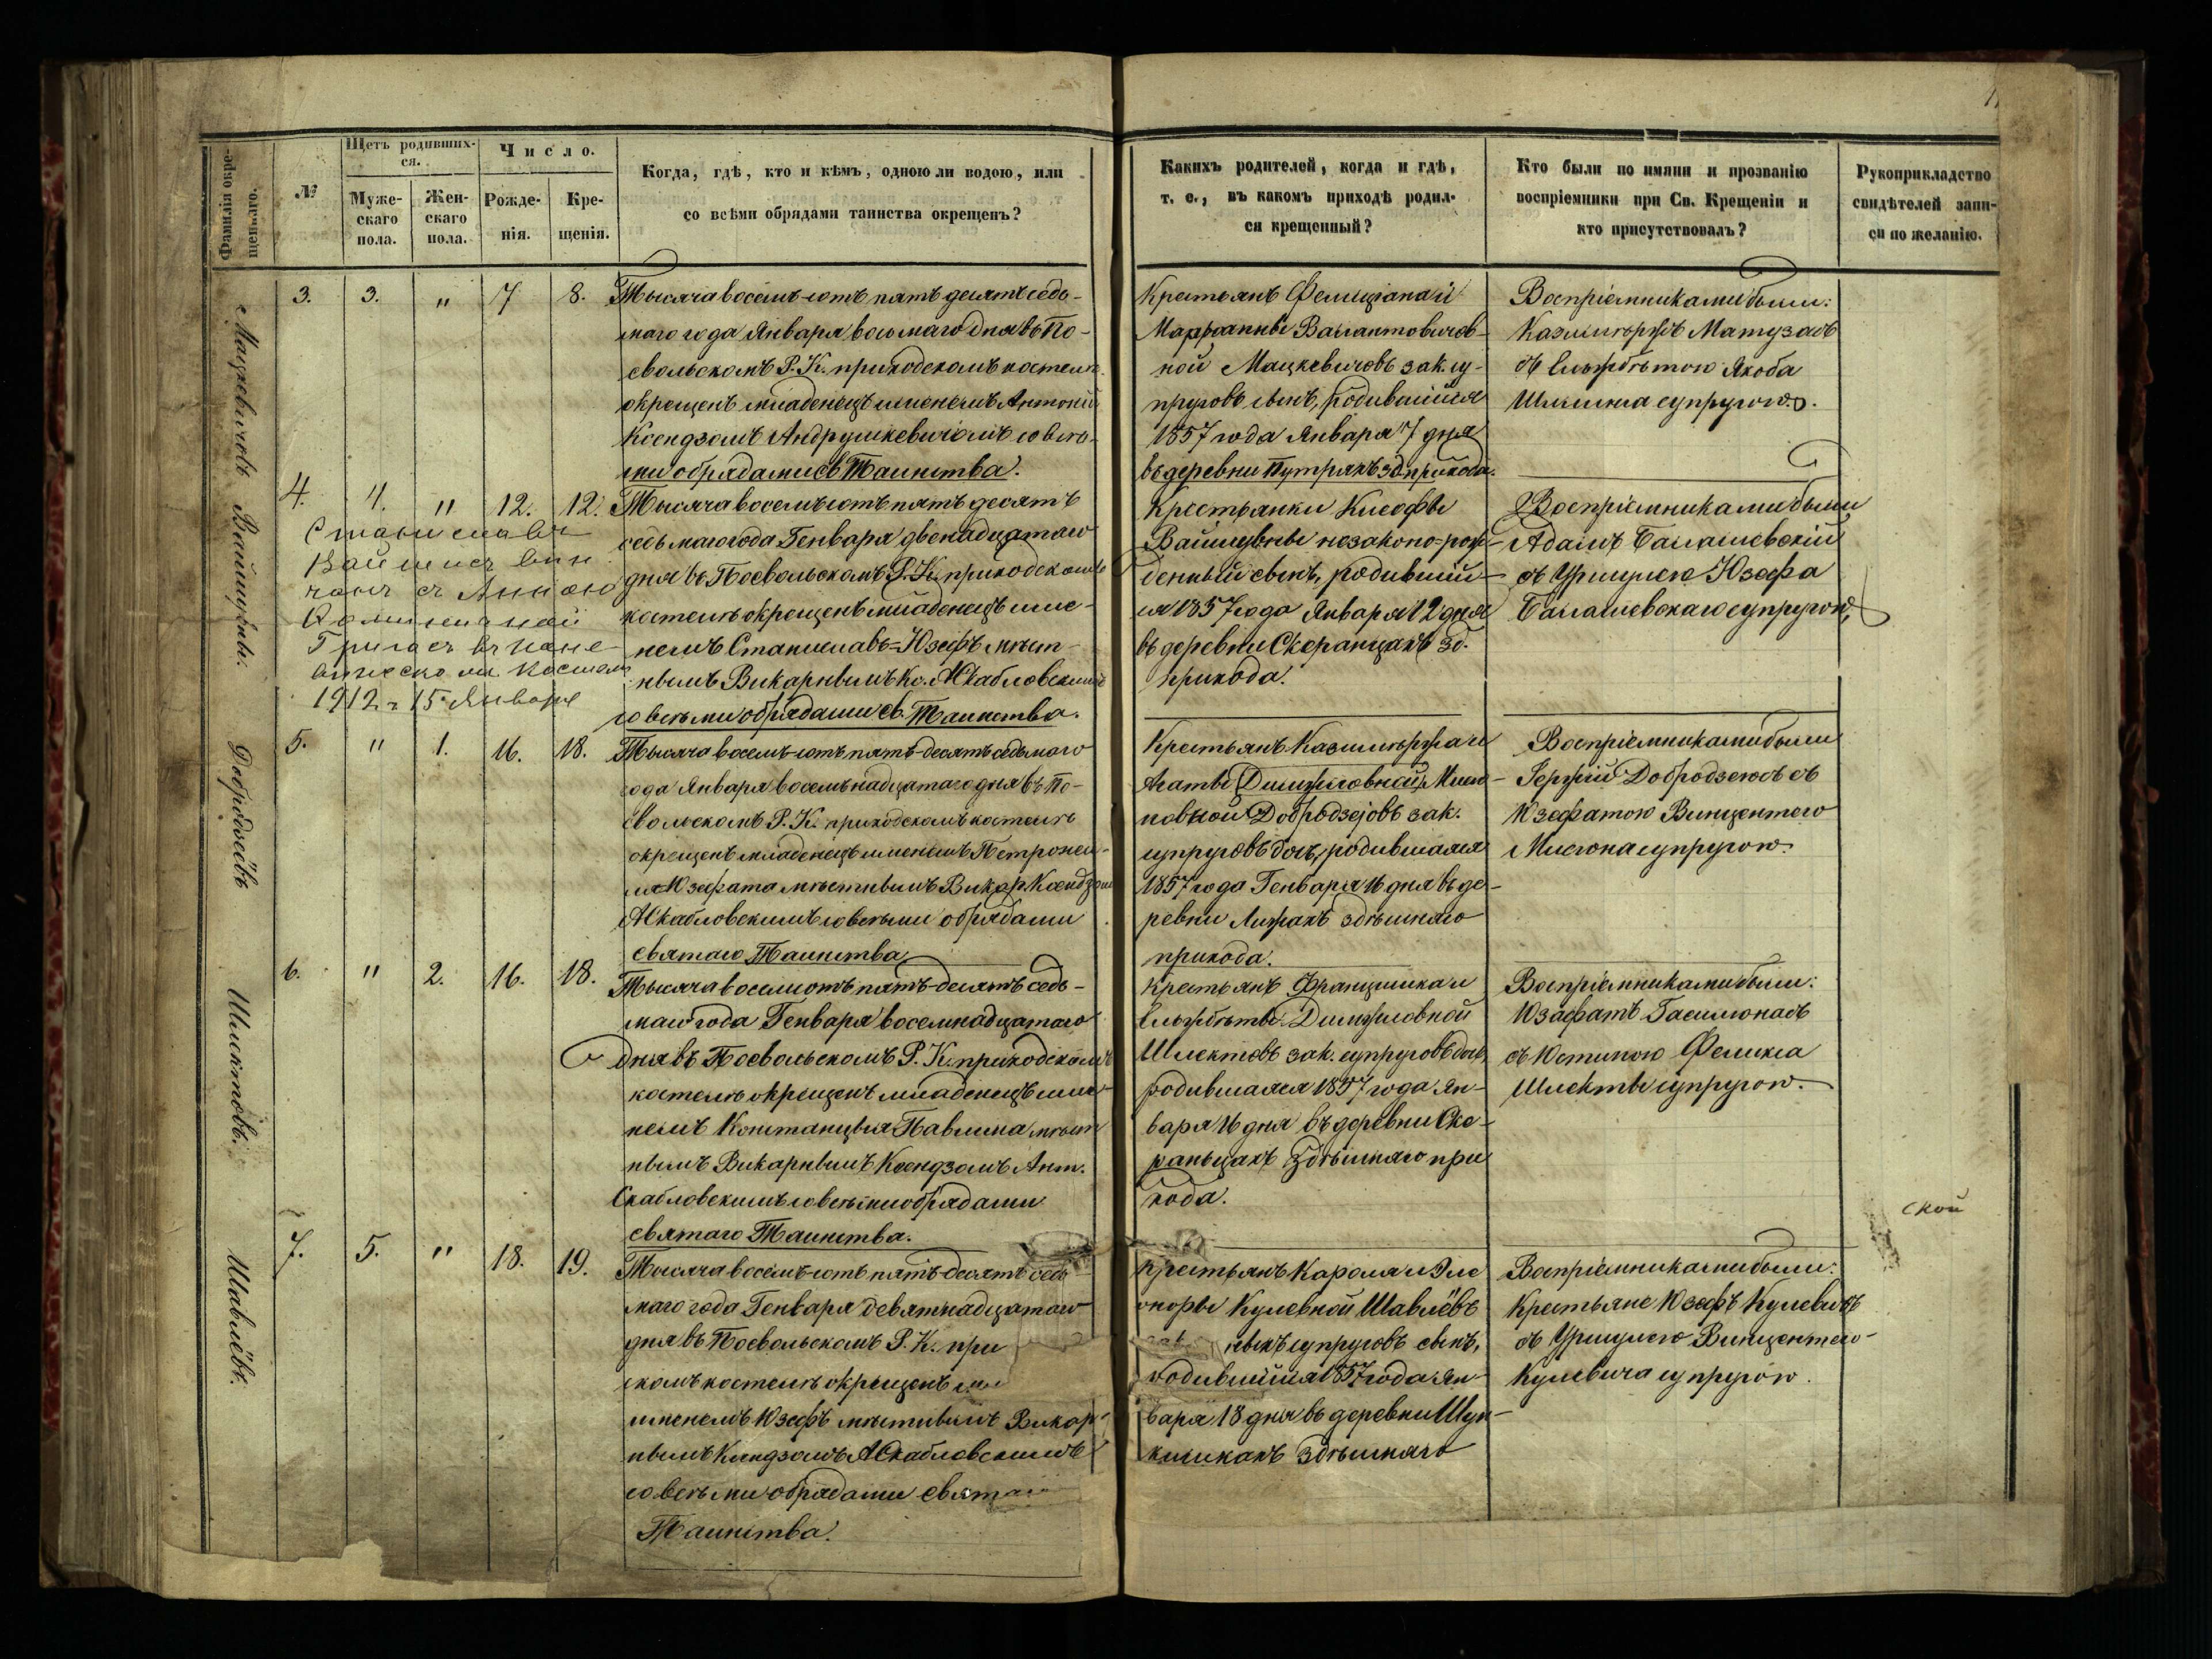 Фамилія окре-
щеннаго.
№
Щетъ родивших-
ся.
Муже-
скаго
пола.
Жен-
скаго
пола.
Число.
Рожде-
нія.
Кре-
щенія.
Когда, гдѣ, кто и кѣмъ, одною ли водою, или
со всѣми обрядами таинства окрещенъ?
Какихъ родителей, когда и гдѣ,
т. е., въ какомъ приходѣ родил-
ся крещенный?
Кто были по имяни и прозванію
воспріемники при Св. Крещеніи и
кто присутствовалъ?
Рукоприкладство
свидѣтелей запи-
си по желанію.
Мацкевичовъ
3.
3.
"
7
8.
Тысяча восемь-сотъ пять десятъ седь-
маго года Января восьмаго дня въ По-
евольскомъ Р. К. приходскомъ костелѣ
окрещенъ младенецъ именемъ Антоній
Ксендзомъ Андрушкевичомъ со всѣ-
ми обрядами св. Таинства.
Крестьянъ Фелиціана и
Маріанны Валантовичов-
ной Мацкевичовъ зак. су-
пруговъ сынъ, родившійся
1857 года Января 7 дня
въ деревни Путряхъ зд. прихода.
Воспріемниками были:
Казимѣржъ Матузасъ
съ Ельжбѣтою Якоба
Шимкуса супругою.
Вайшуты.
4.
4.
"
12.
12.
Станиславъ
Вайшисъ вѣн
чанъ съ Анною
Доминикной
Григасъ въ Поне-
вѣжеско мъ Костел
1912 г 15 Января
Тысяча восемь сотъ пять десятъ
седьмаго года Генваря двенадцатаго
дня въ Поевольскомъ Р. К. приходскомъ
костелѣ окрещенъ младенецъ име-
немъ Станиславъ-Юзефъ мѣст-
нымъ Викарнымъ Кс. А Скабловскимъ
со всѣми обрядами св. Таинства.
Крестьянки Клеофы
Вайшувны незаконо-рож-
денный сынъ, родивший-
ся 1857 года Января 12 дня
въ деревни Скеранцахъ зд.
прихода.
Воспріемниками были
Адамъ Балашевскій
съ Уршулею Юзефа
Балашевскаго супругою,
Добродзѣёвъ
5.
"
1.
16.
18.
Тысяча восемь-сотъ пять-десятъ седьмаго
года Января восемьнадцатаго дня въ По-
евольскомъ Р. К. приходскомъ костелѣ
окрещенъ младенецъ именемъ Петронел-
ля Юзефата мѣстнымъ Викар. Ксендзом
А Скабловскимъ со всѣми обрядами
святаго Таинства.
Крестьянъ Казимѣржа и
Агаты
Добродзеіовъ зак.
супруговъ дочь, родившаяся
1857 года Генваря 16 дня въ де-
ревни Лижахъ здѣшняго
прихода.
Воспріемниками были
Іержій Добродзеюсъ съ
Юзефатою Винцентого
супругою.
Шликтовъ.
6.
"
2.
16.
18.
Тысяча восемсотъ пять-десятъ седь-
маго года Генваря восемнадцатаго
дня въ Поевольскомъ Р. К. приходскомъ
костелѣ окрещенъ младенецъ име-
немъ Констанцыя Павлина мѣст
нымъ Викарнымъ Ксендзомъ Ант.
Скабловскимъ со всѣми обрядами
святаго Таинства.
Крестьянъ Францишка и
Ельжбѣты
Шлектовъ зак. супруговъ дочь
родившаяся 1857 года Ян-
варя 16 дня въ деревни Ске-
раньцахъ здѣшняго при
хода.
Воспріемниками были:
Юзафатъ Гасилюнасъ
съ Юстиною Феликса
Шлекты супругою.
ской
Шавлёвъ.
7.
5.
"
18.
19.
Тысяча восемь-сотъ пять-десятъ седь
маго года Генваря девятнадцатаго
дня въ Поевольскомъ Р. К. при
скомъ костелѣ окрещенъ мла
именемъ Юзефъ мѣстнымъ Викар-
нымъ Ксендзомъ А Скабловскимъ
со всѣми обрядами святаго
Таинства.
Крестьянъ Кароля и Эле
оноры Кулевной Шавлёвъ
зак нныхъ супруговъ сынъ,
родившійся 1857 года Ян-
варя 18 дня въ деревни Шун-
кишкахъ здѣшняго
Воспріемниками были:
Крестьяне Юзефъ Кулевичъ
съ Уршулею Винцентего-
Кулевича супругою.